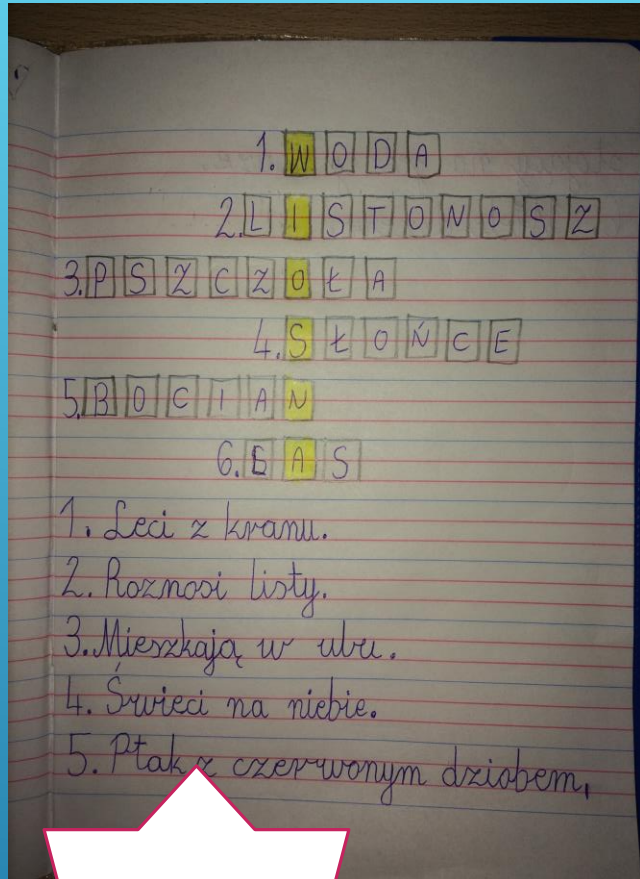 1. WODA
2. LISTONOSZ
3. PSZCZOŁA
4. SŁOŃCE
5. BOCIAN
6. LAS
1. Leci z kranu.
2. Roznosi listy.
3. Mieszkają w ulu.
4. Świeci na niebie.
5. Ptak z czerwonym dziobem,